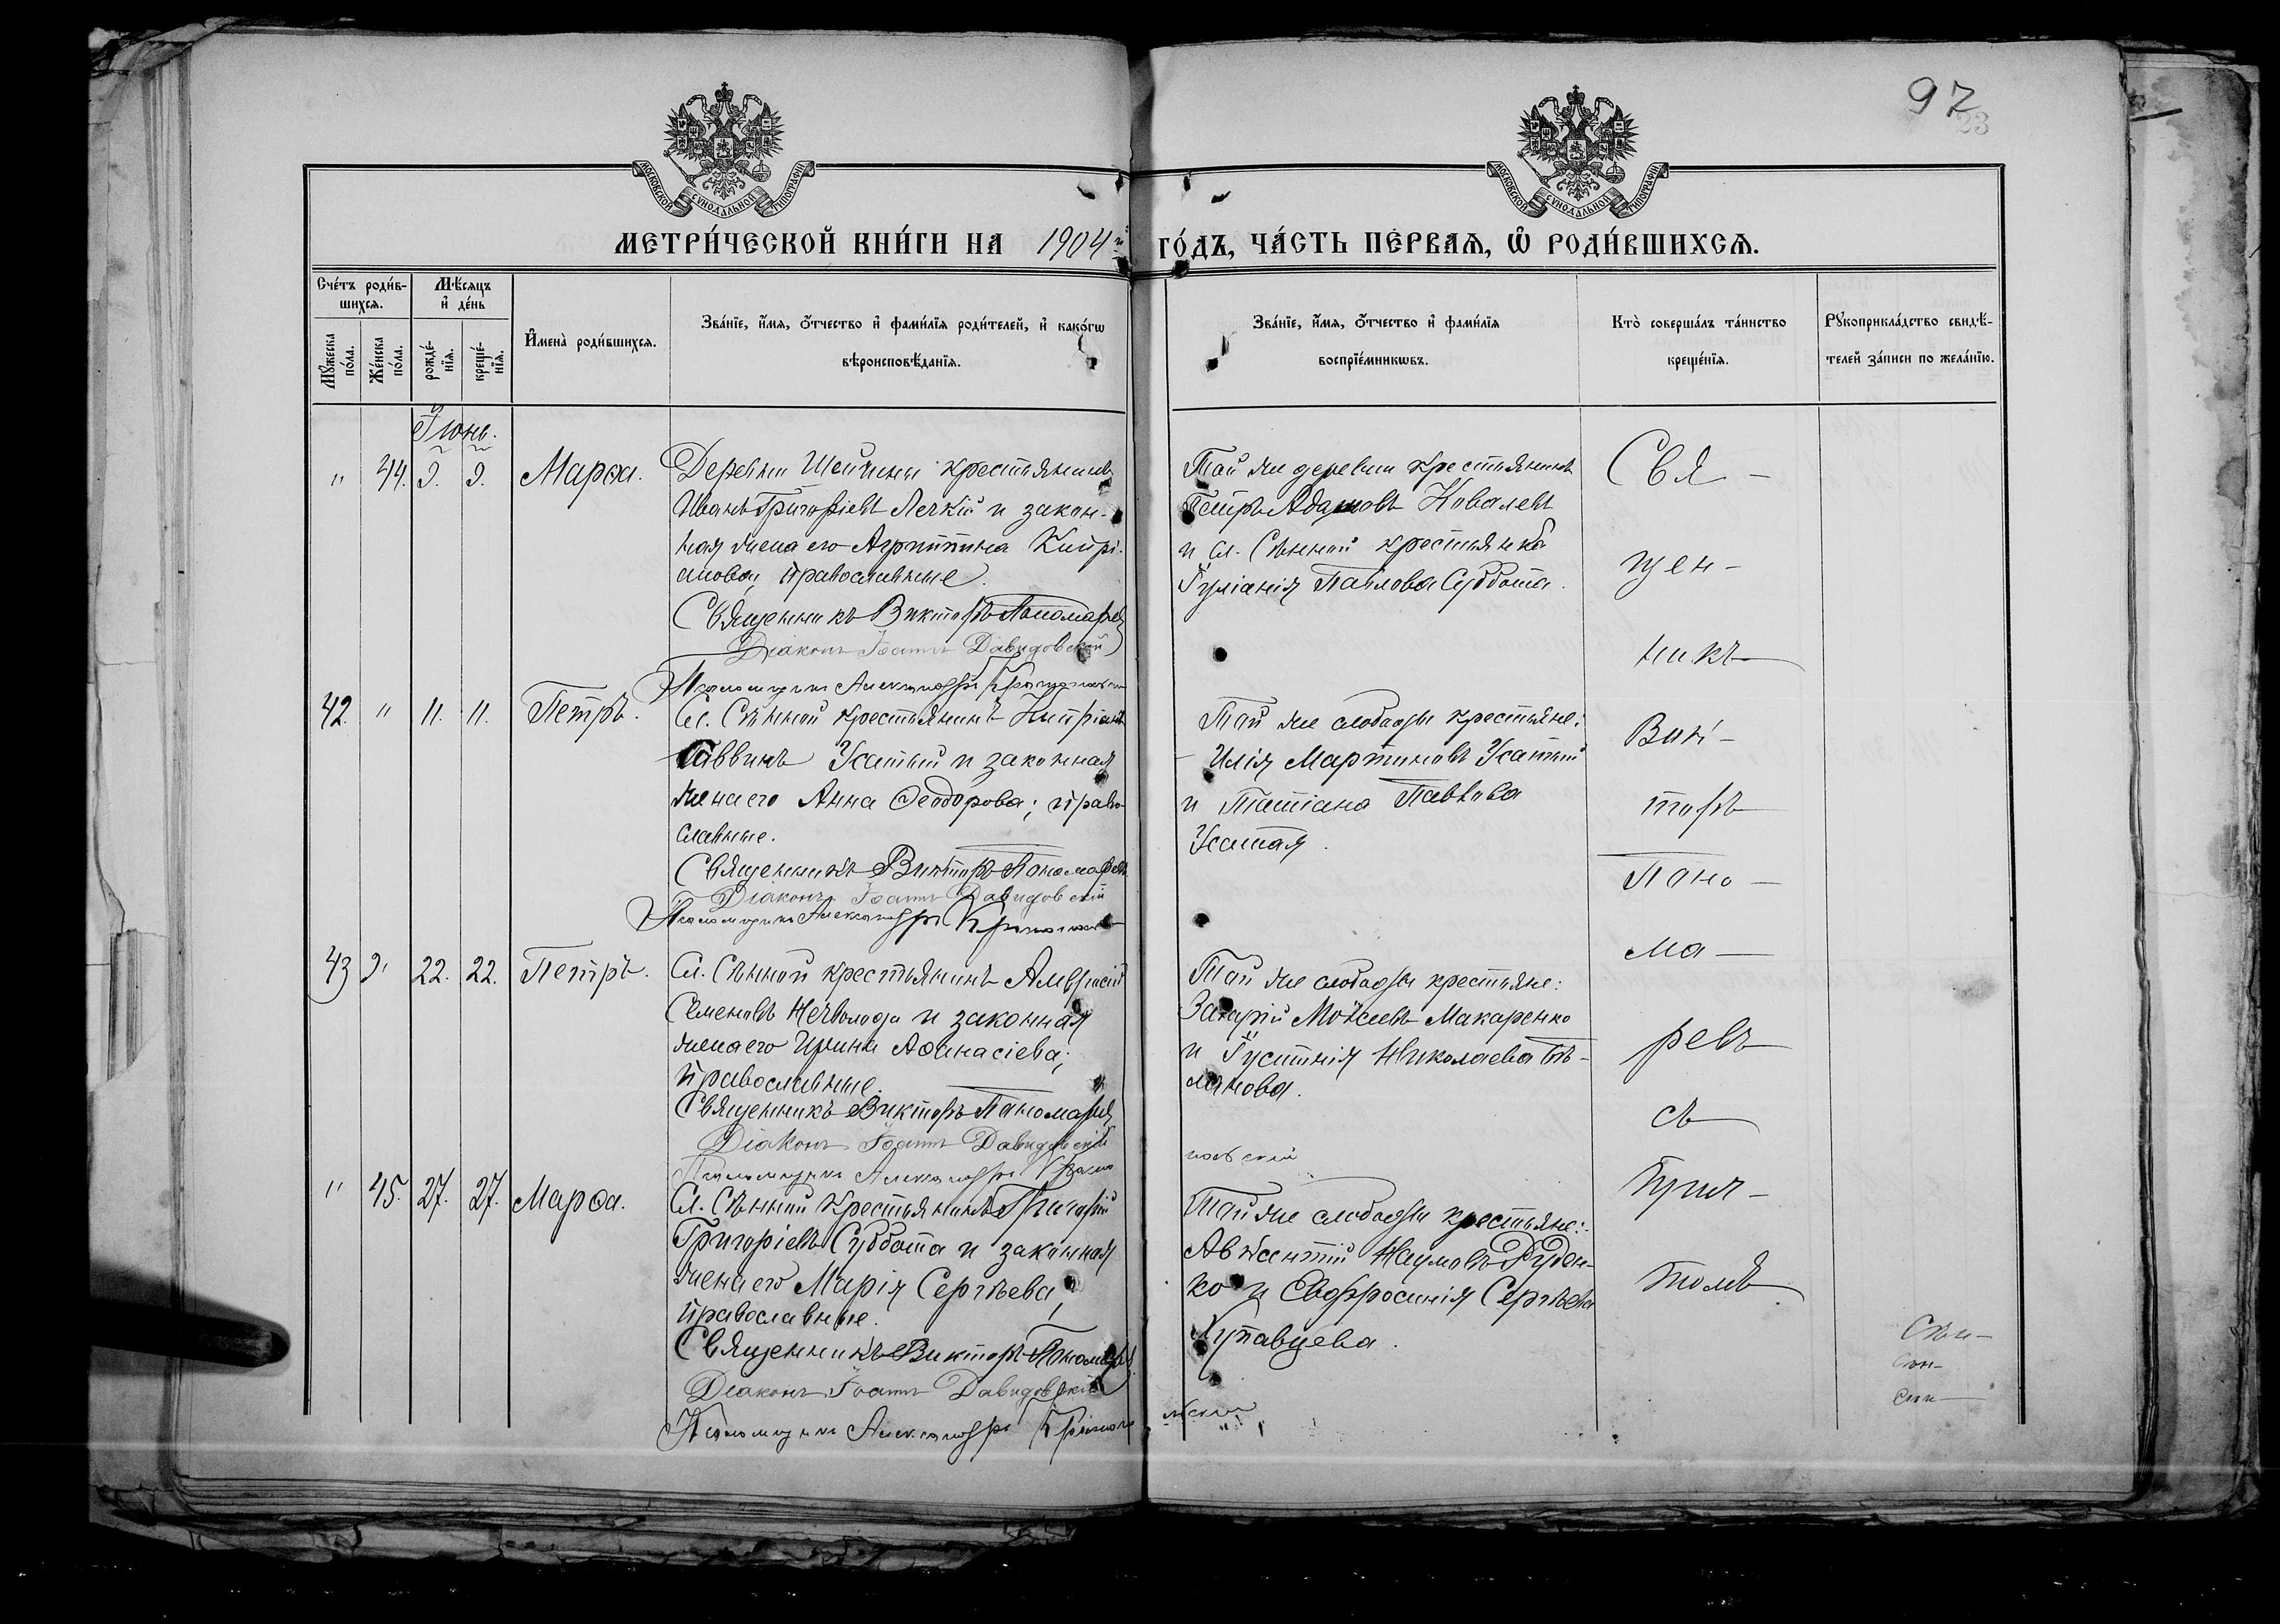 97
23
МОСКОВСКОЙ СѴНОДАЛЬНОЙ ТИПОГРАФІИ
МОСКОВСКОЙ СѴНОДАЛЬНОЙ ТИПОГРАФІИ
МЕТРИ́ЧЕСКОЙ КНИ́ГИ НА 1904й ГО́ДЪ, ЧА́СТЬ ПЕ́РВАѦ, Ѿ РОДИ́ВШИХСѦ.
Сче́тъ роди́в-
шихсѧ.
Мꙋ́жеска по́ла.
Же́нска по́ла.
Мѣ́сѧцъ и҆ де́нь
рожде́-нїѧ.
креще́-нїѧ.
И҆мена̀ роди́вшихсѧ.
Зва́нїе, и҆́мѧ, ѻ҆́тчество и҆ фами́лїѧ роди́телей, и҆ како́гѡ
вѣроисповѣ́данїѧ.
Зва́нїе, и҆́мѧ, ѻ҆́тчество и҆ фами́лїѧ
воспрїе́мникѡвъ.
Кто̀ соверша́лъ та́инство
креще́нїѧ.
Рꙋкоприкла́дство свидѣ́-
телей за́писи по жела́нїю.
Іюнь.
" 44. 9. 9. Марѳа.
Деревни крестьянинъ
Иванъ Григоріевъ Легкій и закон-
ная жена его Агриппина Кипрі-
анова, православные.
Священникъ Викторъ Пономаревъ
Діаконъ Іоаннъ Давидовскій
Псаломщикъ Александръ
Той же деревни крестьянинъ
Петръ Адамовъ Ковалевъ
и сл. Сѣнной крестьянка
Іуліанія Павлова Суббота.
42. " 11. 11. Петръ.
Сл. Сѣнной крестьянинъ Кипріанъ
Саввинъ Усатый и законная
жена его Анна Ѳеодорова; право-
славные.
Священникъ Викторъ Пономаревъ
Діаконъ Іоаннъ Давидовскій
Псаломщикъ Александръ
Той же слободы крестьяне:
Илія Мартиновъ Усатый
и Татіана Павлова
Усатая.
43 " 22. 22. Петръ.
Сл. Сѣнной крестьянинъ
Семеновъ Нечволода и законная
жена его Ирина Аѳанасіева;
православные.
Священникъ Викторъ Пономаревъ
Діаконъ Іоаннъ Давидовскій
Псаломщикъ Александръ
Той же слободы крестьяне:
Захарій Моѵсеевъ Макаренко
и Іустинія Николаева Бѣ-
ликова.
" 45. 27. 27. Марѳа.
Сл. Сѣнной крестьянинъ Григорій
Григоріевъ Суббота и законная
жена его Марія Сергѣева;
православные.
Священникъ Викторъ Пономаревъ
Діаконъ Іоаннъ Давидовскій
Псаломщикъ Александръ
Той же слободы крестьяне:
Авѯентій Наумовъ Руден-
ко и Евфросинія Сергѣева
Купавцева.
Свя-
щен-
никъ
Вик-
торъ
Поно-
ма-
ревъ
съ
прич-
томъ